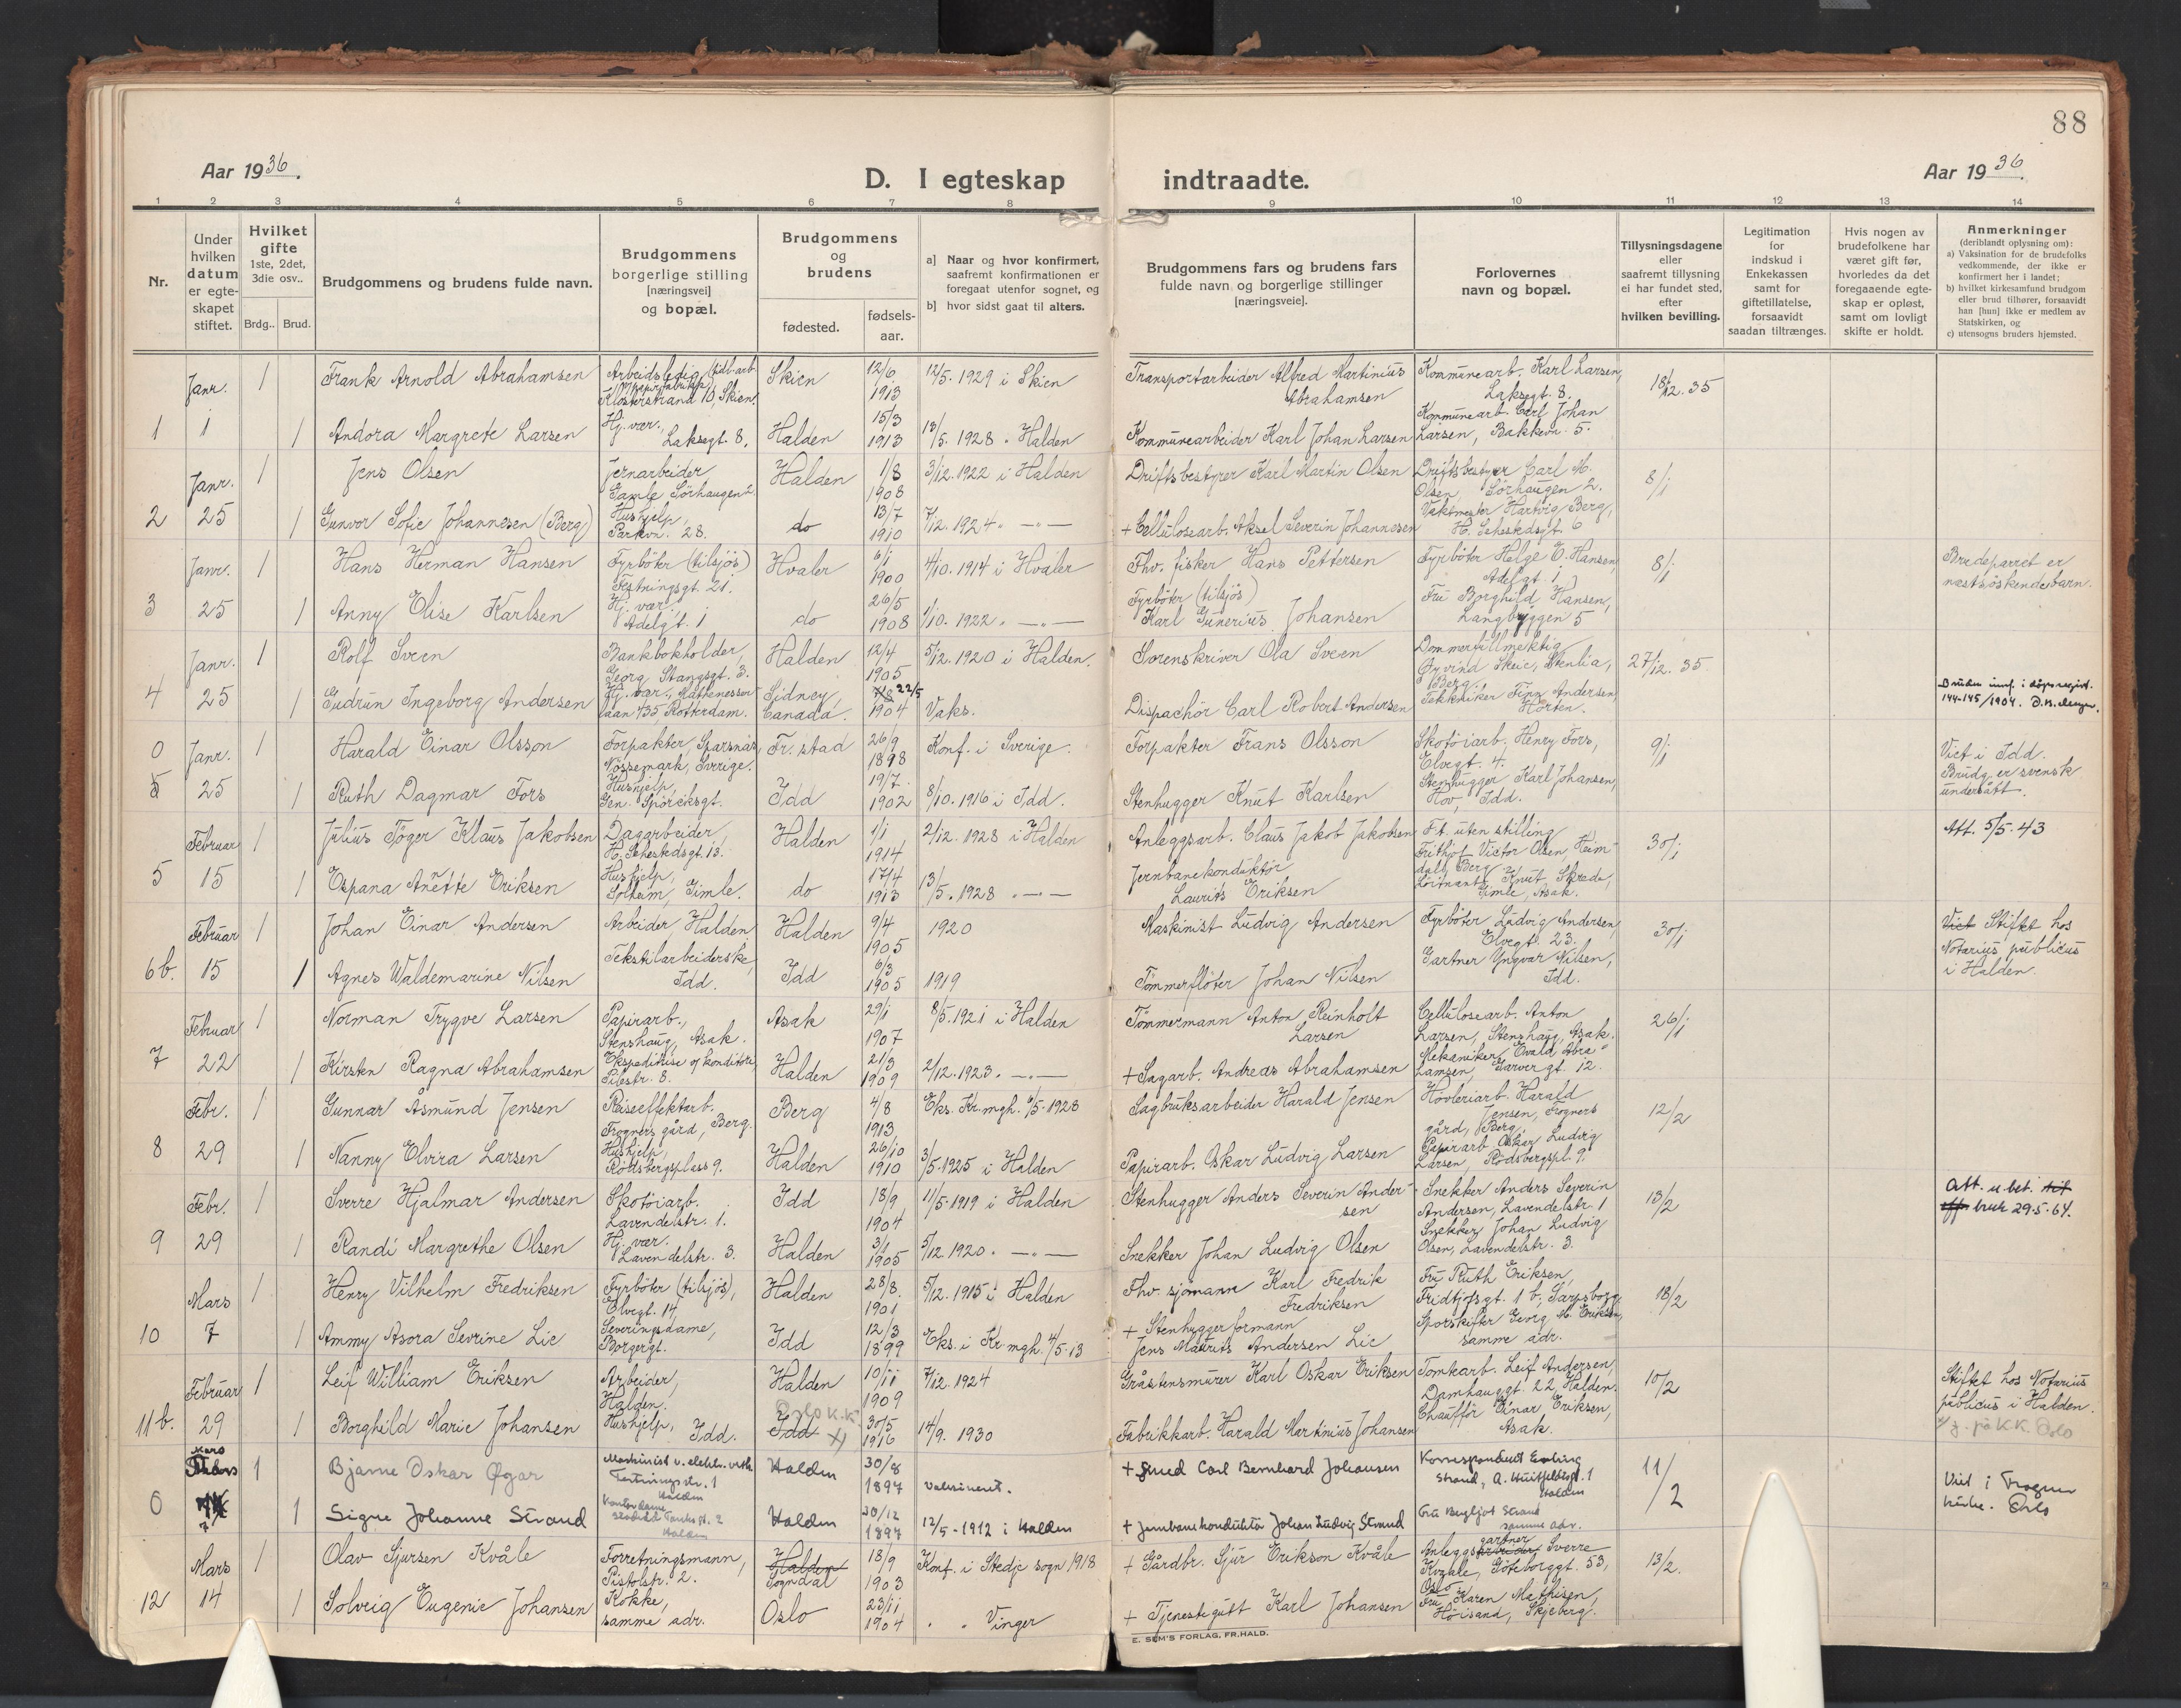 88
Aar 1936.
D. I egteskap indtraadte.
Aar 1936.
1 2 3 4 5 6 7 8 9 10 11 12 13 14
Nr.
Under hvilken datum er egte-skapet stiftet.
Hvilket gifte 1ste, 2det, 3die osv..
Brdg.. Brud.
Brudgommens og brudens fulde navn.
Brudgommens borgerlige stilling [næringsvei] og bopæl.
Brudgommens og brudens
fødested.
fødsels-aar.
a] Naar og hvor konfirmert, saafremt konfirmationen er foregaat utenfor sognet, og
b] hvor sidst gaat til alters.
Brudgommens fars og brudens fars fulde navn og borgerlige stillinger [næringsveie].
Forlovernes navn og bopæl.
Tillysningsdagene eller saafremt tillysning ei har fundet sted, efter hvilken bevilling.
Legitimation for indskud i Enkekassen samt for giftetillatelse, forsaavidt saadan tiltrænges.
Hvis nogen av brudefolkene har været gift før, hvorledes da det foregaaende egte-skap er opløst, samt om lovligt skifte er holdt.
Anmerkninger (deriblandt oplysning om):
a) Vaksination for de brudefolks vedkommende, der ikke er konfirmert her i landet;
b) hvilket kirkesamfund brudgom eller brud tilhører, forsaavidt han [hun] ikke er medlem av Statskirken, og
c) utensogns bruders hjemsted.
Janr. 1 Frank Arnold Abrahamsen Arbeidsledig (tidl. arb. Klosterstrand 10, Skien. Skien 12/6 1913 12/5. 1929 i Skien Transportarbeider Alfred Martinius Abrahamsen Kommunearb. Karl Larsen, Laksegt. 8. 18/12. 35
1 1 1 Andora Margrete Larsen Hj. vær., Laksegt. 8. Halden 15/3 1913 13/5. 1928 " Halden Kommunearbeider Karl Johan Larsen Kommunearb. Carl Johan Larsen, Bakkevn. 5.
Janr. 1 Jens Olsen Jernarbeider Gamle Sörhaugen 2. Halden 1/8 1908 3/12. 1922 i Halden Driftsbestyrer Karl Martin Olsen Driftsbestyrer Carl M. Olsen, Sörhaugen 2. 8/1
2 25 1 Gunvor Sofie Johannesen (Berg) Hushjelp, Parkvn. 28. do 13/7 1910 7/12. 1924 " —"— + Cellulosearb. Aksel Severin Johannesen Vaktmester Hartvig Berg, H. Sehestedsgt. 6
Janr. 1 Hans Herman Hansen Fyrböter (tilsjös) Festningsgt. 21. Hvaler 6/1 1900 4/10. 1914 i Hvaler Fhv. fisker Hans Pettersen Fyrböter Helge E. Hansen, Adelgt. 1 8/1 Brudeparret er næstsöskendebarn.
3 25 1 Anny Elise Karlsen Hj. vær. Adelgt. 1 do 26/5 1908 1/10. 1922 " —"— Fyrböter (tilsjös) Karl Gunerius Johansen Fru Borghild Hansen, Langbryggen 5
Janr. 1 Rolf Sveen Bankbokholder, Georg Stangsgt. 3. Halden 12/4 1905 5/12. 1920 i Halden. Sorenskriver Ola Sveen Dommerfullmektig Øyvind Skeie, Stenlia, Berg. 27/12. 35.
4 25 1 Gudrun Ingeborg Andersen Hj. vær., Mathenesser laan 435 Rotterdam. Sidney, Canada. 22/5 1904 Vaks. Dispachör Carl Robert Andersen Tekniker Finn Andersen, Horten. Bruden innf. i döpsregist. 144-145/1904.
0 Janr. 1 Harald Einar Olsson Forpakter, Sparsnäs, Nössemark, Sverige. Fr. stad 26/9 1898 Konf. i Sverige. Forpakter Frans Olsson Skotöiarb. Henry Fors, Elvegt. 4. 9/1 Viet i Idd. Brudg. er svensk undersått.
5 25 1 Ruth Dagmar Fors Hushjelp, Gen. Spörcksgt. Idd 19/7. 1902 8/10. 1916 i Idd. Stenhugger Knut Karlsen Stenhugger Karl Johansen, Hov, Idd.
Februar 1 Julius Töger Klaus Jakobsen Dagarbeider, H. Sehestedsgt. 13. Halden 1/1 1914 2/12. 1928 i Halden Anleggsarb. Claus Jakob Jakobsen F.t. uten stilling Frithjof Victor Olsen, Heim-dall, Berg 30/1 Att. 5/5. 43
5 15 1 Espana Anette Eriksen Hushjelp, Solheim, Gimle. do 17/4 1913 13/5. 1928 " —"— Jernbanekonduktör Laurits Eriksen Löitnant Knut Skrada, Gimle, Asak.
Februar 1 Johan Einar Andersen Arbeider Halden Halden 9/4 1905 1920 Maskinist Ludvig Andersen Fyrböter Ludvig Andersen, Elvegt. 23. 30/1 Viet Stiftet hos Notarius publicus i Halden.
6b. 15 1 Agnes Waldemarine Nilsen Tekstilarbeiderske, Idd. Idd 6/3 1905 1919 Tömmerflöter Johan Nilsen Gartner Yngvar Nilsen, Idd.
Februar 1 Norman Trygve Larsen Papirarb., Stenshaug, Asak. Asak 29/1 1907 8/5. 1921 i Halden Tömmermann Anton Reinholt Larsen Cellulosearb. Anton Larsen, Stenshaug, Asak. 26/1
7 22 1 Kirsten Ragna Abrahamsen Ekspeditrise og konditori, Pilestr. 8. Halden 21/3 1909 2/12. 1923. —"— + Sagarb. Andreas Abrahamsen Mekaniker Evald Abra-hamsen, Garvergt. 12.
Febr. 1 Gunnar Åsmund Jensen Reiseeffektarb. Frogners gård, Berg. Berg 4/8 1913 Eks. Kr. mgh. 6/5. 1928 Sagbruksarbeider Harald Jensen Hövleriarb. Harald Jensen, Frogners gård, Berg, 12/2
8 29 1 Nanny Elvira Larsen Hushjelp, Rödsbergsplass 9. Halden 26/10 1910 3/5. 1925 i Halden Papirarb. Oskar Ludvig Larsen Papirarb. Oskar Ludvig Larsen, Rödsbergspl. 9.
Febr. 1 Sverre Hjalmar Andersen Skotöiarb. Lavendelstr. 1. Idd 18/9 1904 11/5. 1919 i Halden Stenhugger Anders Severin Ander-sen Snekker Anders Severin Andersen, Lavendelstr. 1 13/2 Att. u. bet. bruk 29.5.64.
9 29 1 Randi Margrethe Olsen Hj. vær. Lavendelstr. 3. Halden 3/1 1905 5/12. 1920 " —"— Snekker Johan Ludvig Olsen Snekker Johan Ludvig Olsen, Lavendelstr. 3.
Mars 1 Henry Vilhelm Fredriksen Fyrböter (tilsjös), Elvegt. 14 Halden 28/8. 1901 5/12. 1915 i Halden Fhv. sjömann Karl Fredrik Fredriksen Fru Ruth Eriksen, Fridtjofsgt. 1 b, Sarpsborg 18/2
10 7 1 Ammy Asora Sevrine Lie Severingsdame, Borgergt. Idd 12/3 1899 Eks. i Kr. mgh. 4/5. 13 + Stenhuggerformann Jens Mauritz Andersen Lie Sporskifter Georg M. Eriksen, samme adr.
Februar 1 Leif William Eriksen Arbeider, Halden. Halden 10/11 1909 7/12. 1924 Gråstensmurer Karl Oskar Eriksen Tomtearb. Leif Andersen, Damhauggt. 22, Halden. 10/2 Stiftet hos Notarius publicus i Halden.
11b. 29 1 Borghild Marie Johansen Hushjelp, Idd. Idd Oslo K.K. x) 30/5 1916 14/9. 1930 Fabrikkarb. Harald Martinius Johansen Chaufför Einar Eriksen, Asak. på K.K. Oslo
Mars 1 Bjarne Oskar Øgar Maskinist v. elektr. verk Festningsstr. 1 Halden Halden 30/8 1897 Vaksinert. + Smed Carl Bernhard Johansen Korrespondent Erling Strand, A. Huitfeldtsgt. 1 Halden 11/2 Viet i Frogner kirke. Oslo
0 7 1 Signe Johanne Strand Kontordame Tanks gt. 2 Halden Halden 20/12 1897 12/5 - 1912 i Halden + Jernbanekonduktör Johan Ludvig Strand Fru Bergljot Strand samme adr.
Mars 1 Olav Sjursen Kvåle Forretningsmann, Pistolstr. 2. Halden Sogndal 18/9 1903 Konf. i Stedje sogn 1918 + Gårdbr. Sjur Erikson Kvåle Anleggsgartner Sverre Kvaale, Göteborggt. 53, Oslo 13/2.
12 14 1 Solveig Eugenie Johansen Kokke, samme adr. Oslo 23/11 1904 " " Vinger + Tjenestegutt Karl Johansen Fru Karen Mathisen, Höisand, Skjeberg.
E. SEM'S FORLAG, FR.HALD.